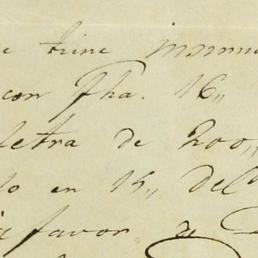 e tiene
con fha. 16,,
letra de 200,,
do en 15,, del
a favor de